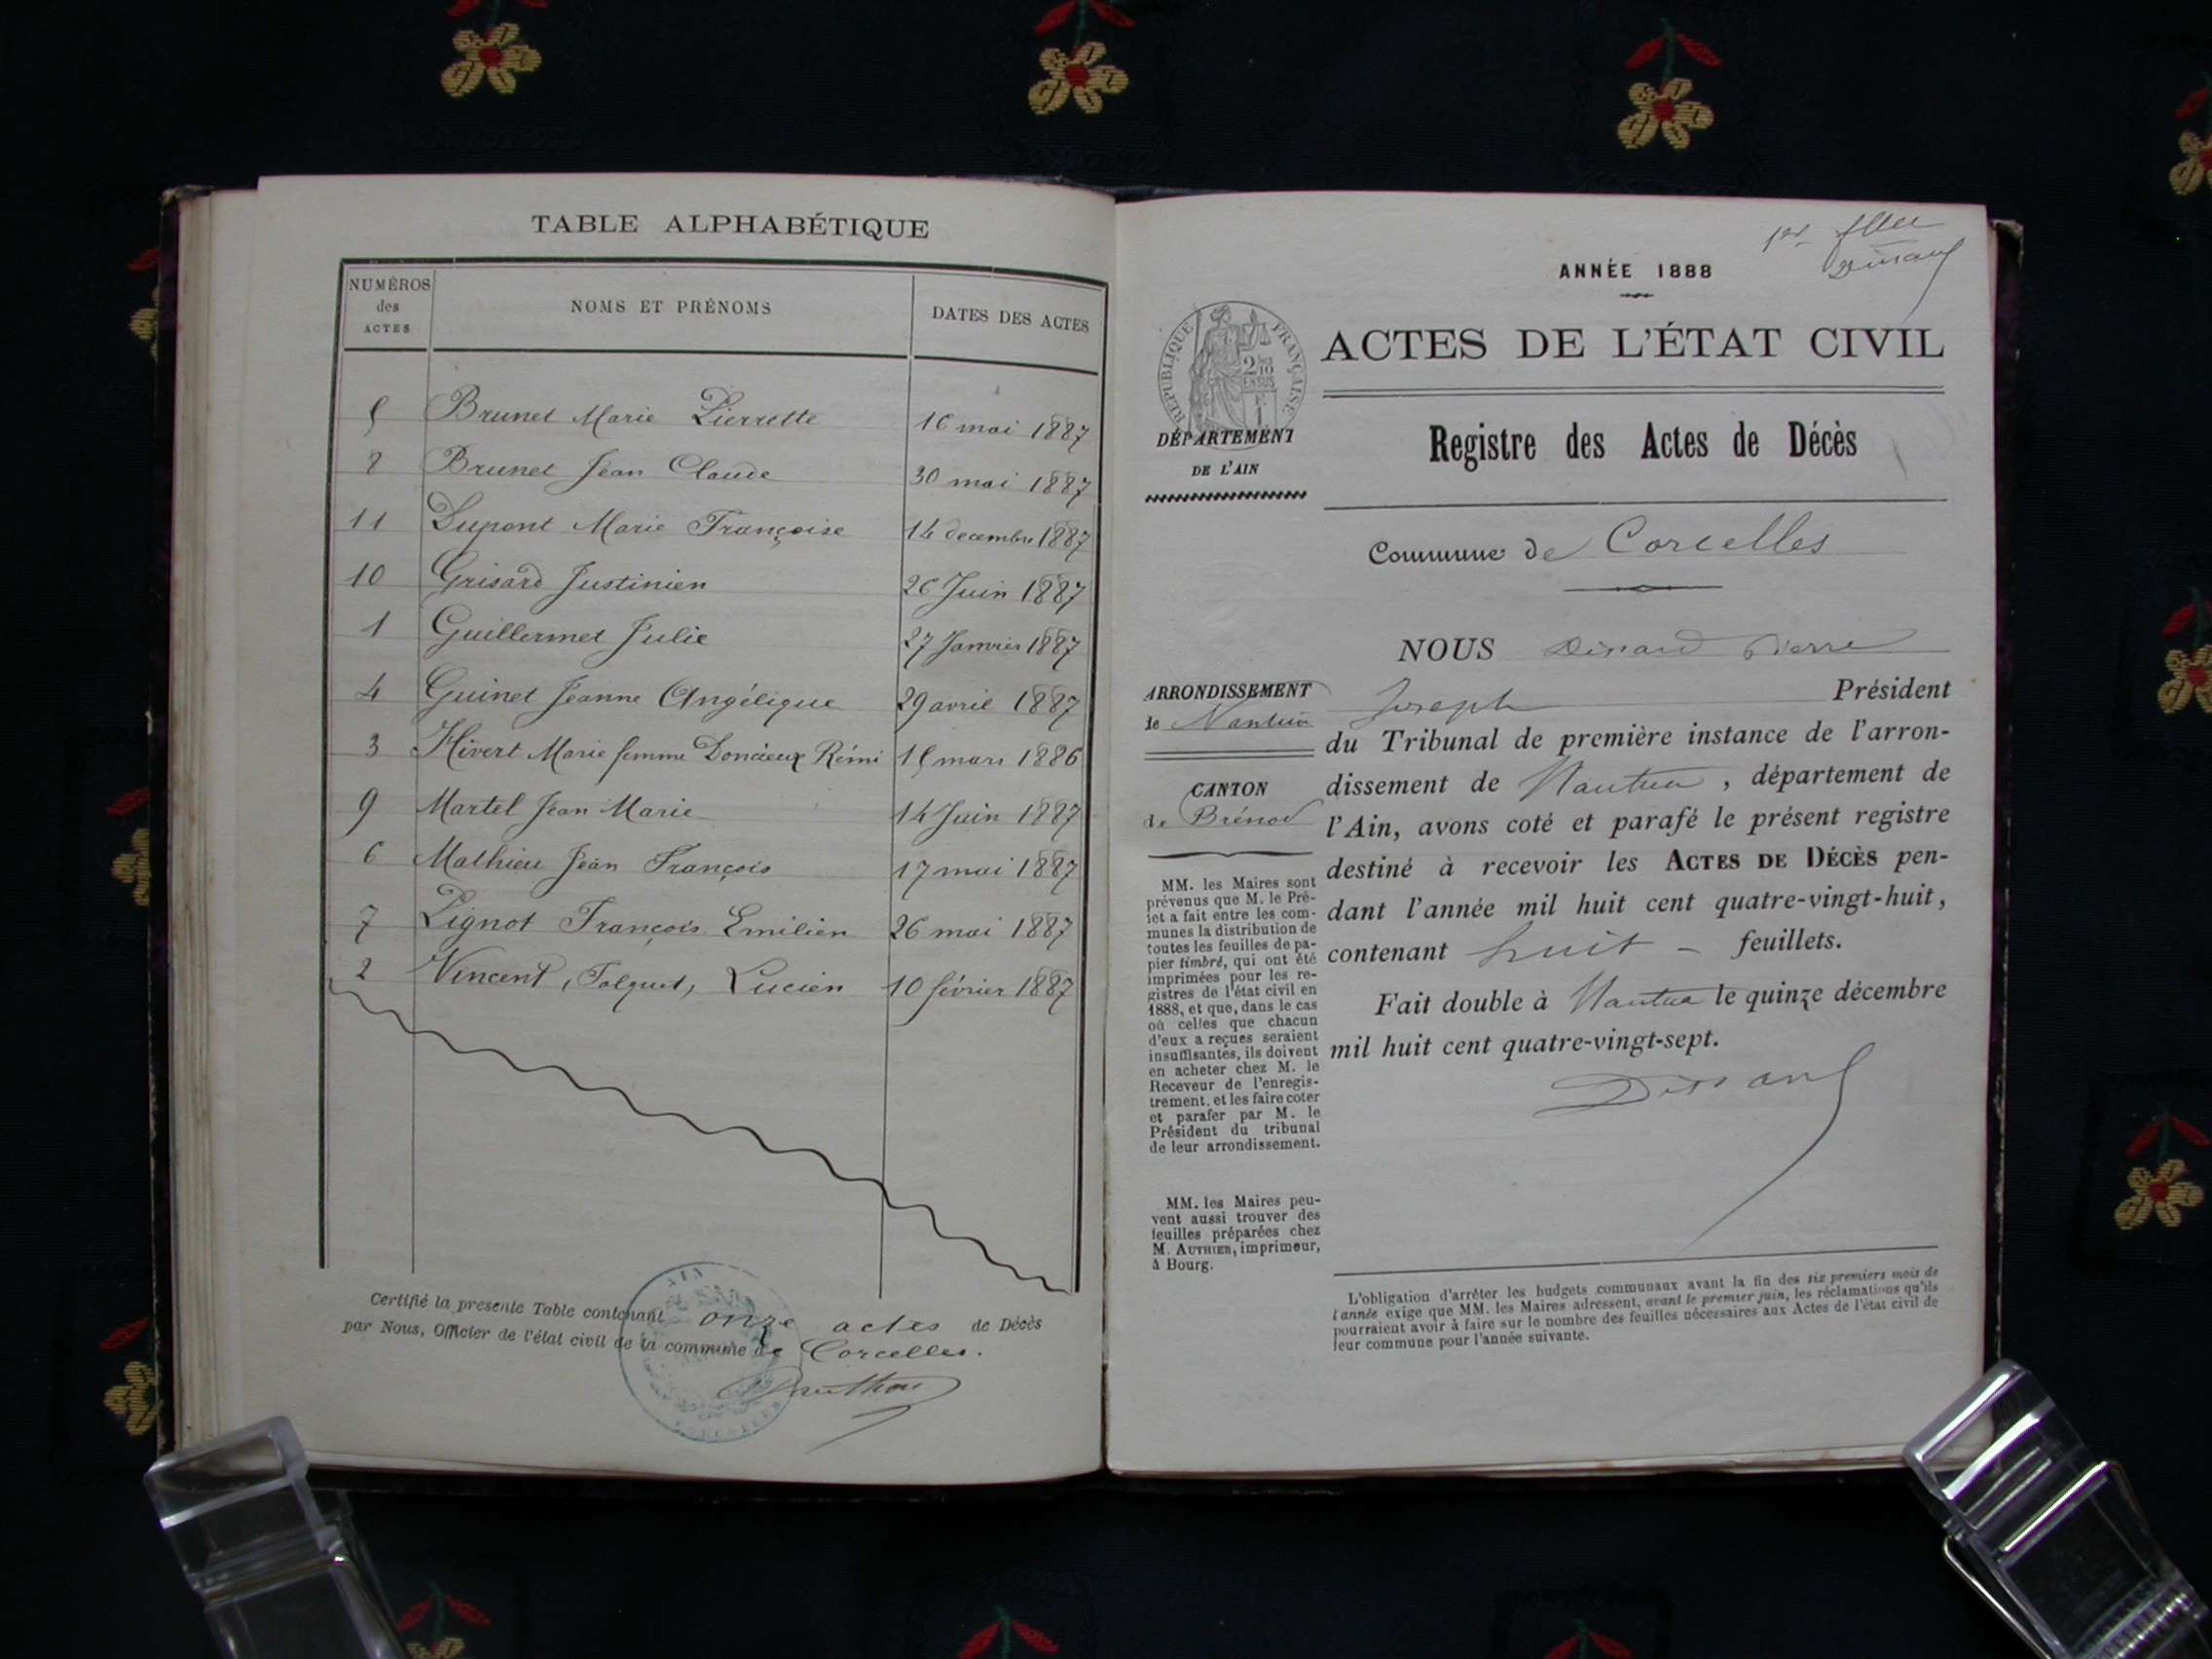 TABLE ALPHABÉTIQUE
NUMÉROS des ACTES NOMS ET PRÉNOMS DATES DES ACTES
5 Brunet Marie Pierrette 16 mai 1887
8 Brunet Jean Claude 30 mai 1887
11 Dupont Marie Françoise 14 decembre 1887
10 Grisard Justinien 26 Juin 1887
1 Guillermet Julie 27 Janvier 1887
4 Guinet Jeanne Angélique 29 avril 1887
3 Hivert Marie femme Doncieux Rémi 15 mars 1886
9 Martel Jean Marie 14 Juin 1887
6 Mathieu Jean François 17 mai 1887
7 Pignot François Emilien 26 mai 1887
2 Vincent, Lucien 10 février 1887
Certifié la présente Table contenant onze actes de Décès
par Nous, Officier de l'état civil de la commune de Corcelles.
1er
ANNÉE 1888
ACTES DE L'ÉTAT CIVIL
RÉPUBLIQUE FRANÇAISE
DÉPARTEMENT
DE L'AIN
Registre des Actes de Décès
Commune de Corcelles
ARRONDISSEMENT
de Nantua
CANTON
de Brénod
MM. les Maires sont
prévenus que M. le Pré-
fet a fait entre les com-
munes la distribution de
toutes les feuilles de pa-
pier timbré, qui ont été
imprimées pour les re-
gistres de l'état civil en
1888, et que, dans le cas
où celles que chacun
d'eux a reçues seraient
insuffisantes, ils doivent
en acheter chez M. le
Receveur de l'enregis-
trement, et les faire coter
et parafer par M. le
Président du tribunal
de leur arrondissement.
MM. les Maires peu-
vent aussi trouver des
feuilles préparées chez
M. AUTHIER, imprimeur,
à Bourg.
NOUS Pierre
Joseph Président
du Tribunal de première instance de l'arron-
dissement de Nantua, département de
l'Ain, avons coté et parafé le présent registre
destiné à recevoir les ACTES DE DÉCÈS pen-
dant l'année mil huit cent quatre-vingt-huit,
contenant huit feuillets.
Fait double à Nantua le quinze décembre
mil huit cent quatre-vingt-sept.
L'obligation d'arrêter les budgets communaux avant la fin des six premiers mois de
l'année exige que MM. les Maires adressent, avant le premier juin, les réclamations qu'ils
pourraient avoir à faire sur le nombre des feuilles nécessaires aux Actes de l'état civil de
leur commune pour l'année suivante.